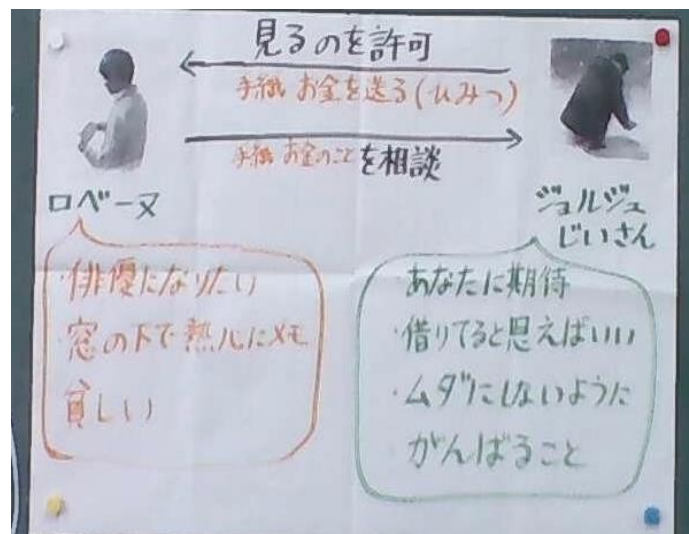 見るのを許可
手紙 お金を送る(ひみつ)
手紙 お金のことを相談
ロベーヌ
ジョルジュ
じいさん
・俳優になりたい
・窓の下で熱心にメモ
貧しい
・あなたに期待
・借りてると思えばいい
・ムダにしないように
がんばること